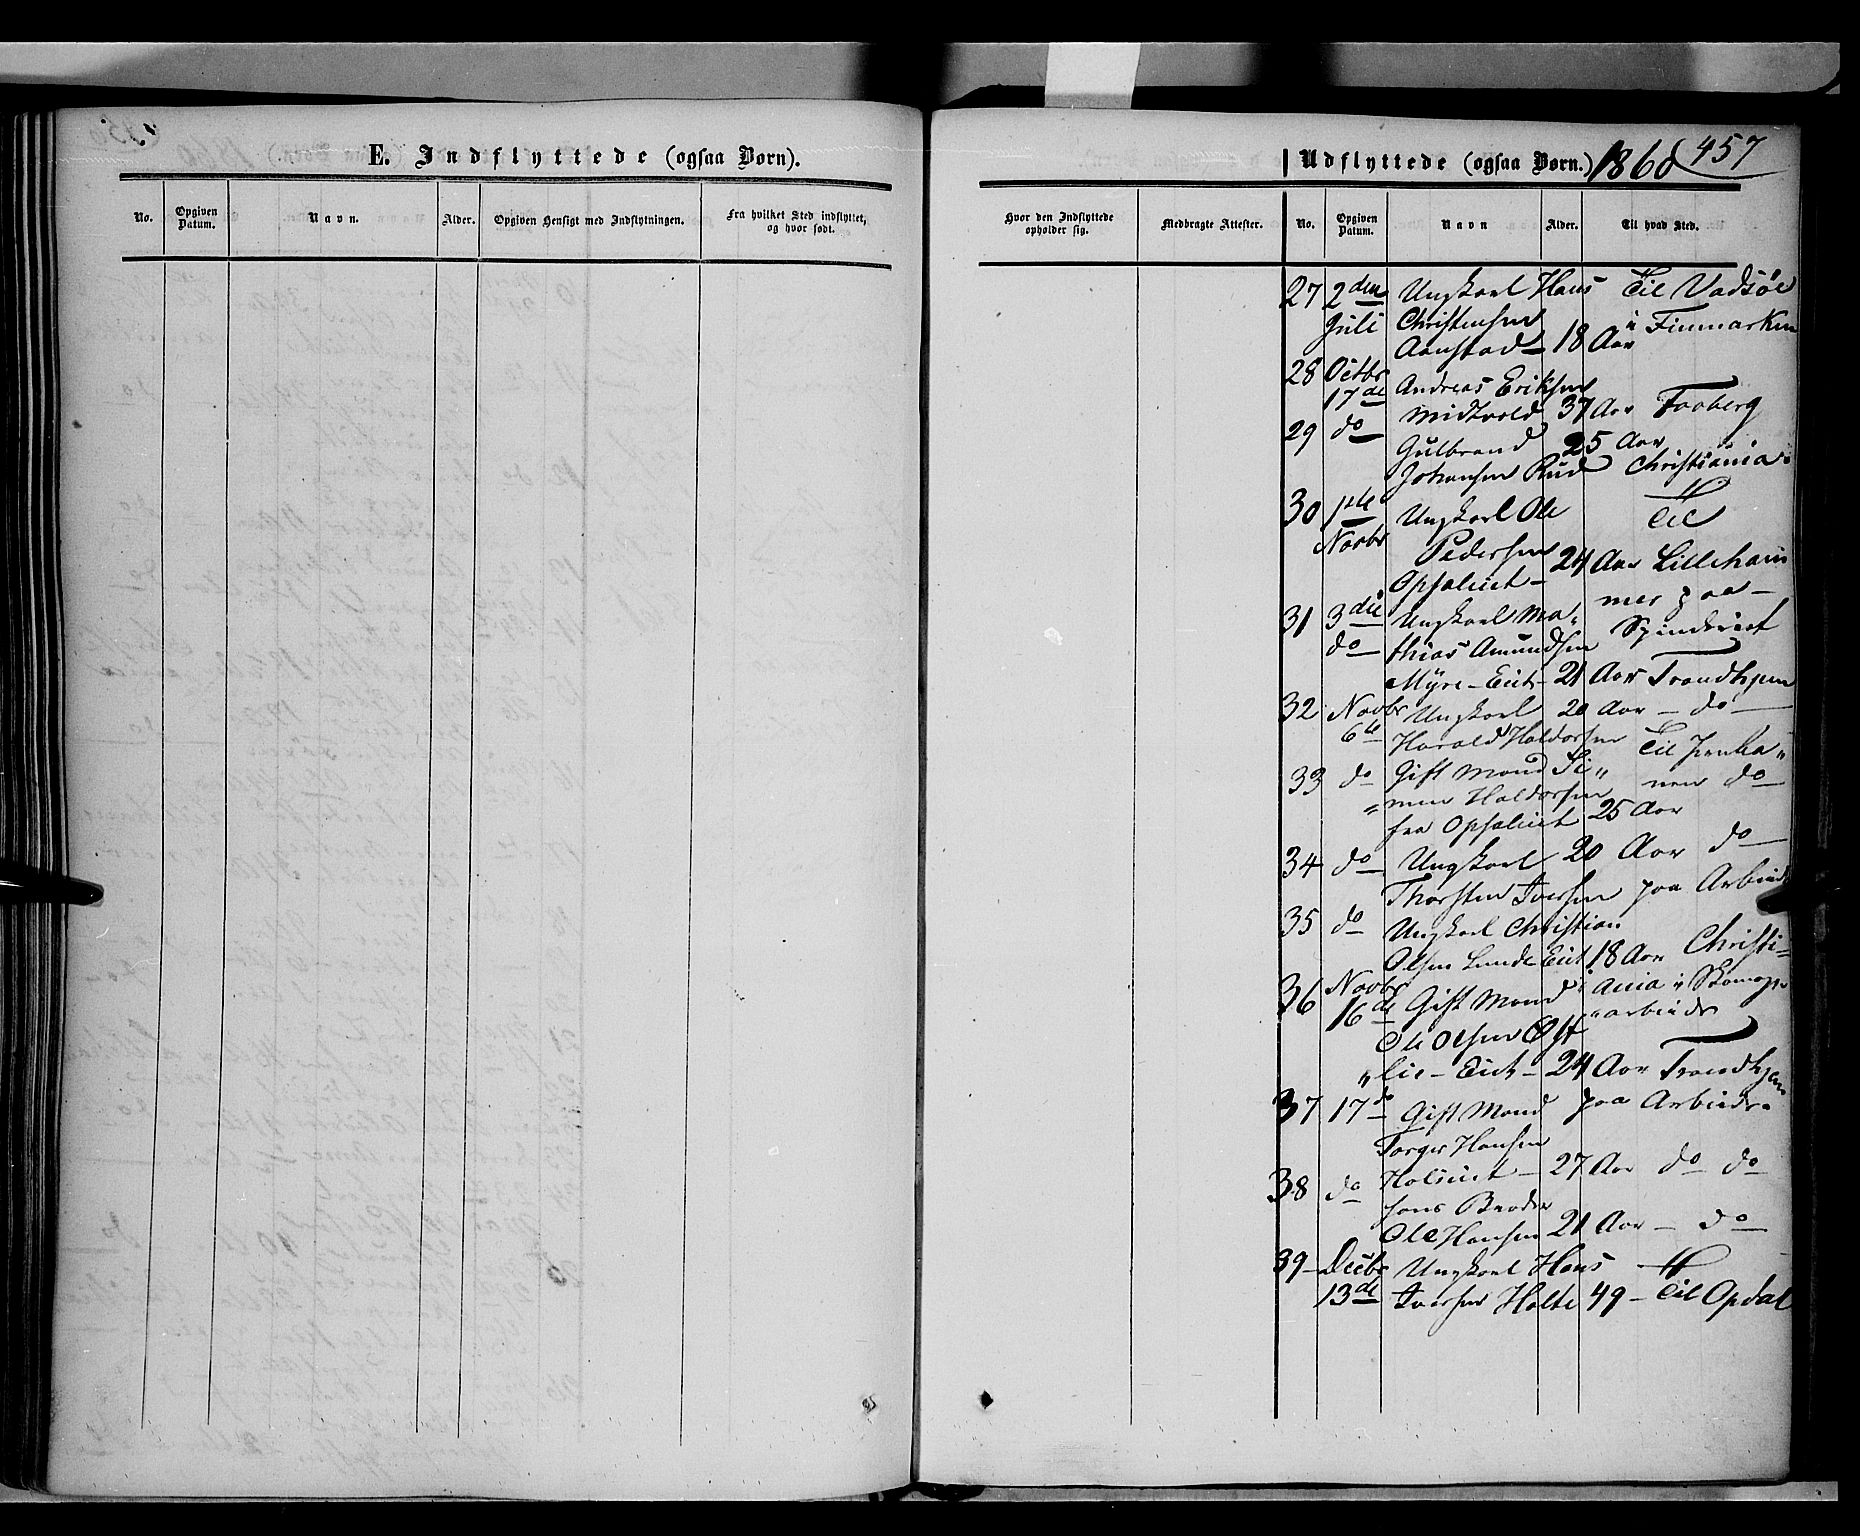 E. Indflyttede (ogsaa Børn).
No.
Opgiven Datum.
Navn.
Alder.
Opgiven Hensigt med Indflytningen.
Fra hvilket Sted indflyttet, og hvor født.
Udflyttede (ogsaa Børn.) 1860 457
Hvor den Indflyttede opholder sig.
Medbragte Attester.
No.
Opgiven Datum.
Navn
Alder.
Til hvad Sted.
27 2den Ungkarl Hans Til Vadsøe
Juli Christensen i Finmarken
Aanstad 18 Aar
28 Octbr Andreas Eriksen
17de Midtvold 37 Aar Faaberg
29 do Gulbrand 25 Aar
Johansen Rud Christiania
30 1ste Ungkarl Ole Til
Novbr Pedersen 24 Aar Lilleham
Opsaliet mer paa
31 3die Ungkarl Ma- Spinderiet
do thias Amundsen
Myre-Eiet 21 Aar Trondhjem
32 Novbr Ungkarl 20 Aar do
6te Harald Haldorsen Til Jernba
33 do Gift Mand Si- nen do
men Haldorsen
fra Opsaliet 25 Aar
34 do Ungkarl 20 Aar do
Thorsten Iversen paa Arbeide
35 do Ungkarl Christian
Olsen Lunde Eiet 18 Aar Christi-
36 Novbr Gift Mand ania i Skomag
16de Ole Olsen arbeide
lie-Eiet 24 Aar Trondhjem
37 17de Gift Mand paa Arbeide
Torger Hansen
Holeiet 27 Aar do do
38 do hans Broder
Ole Hansen 21 Aar do
39 Decbr Ungkarl Hans
13de Iversen Holte 49 Til Opdal